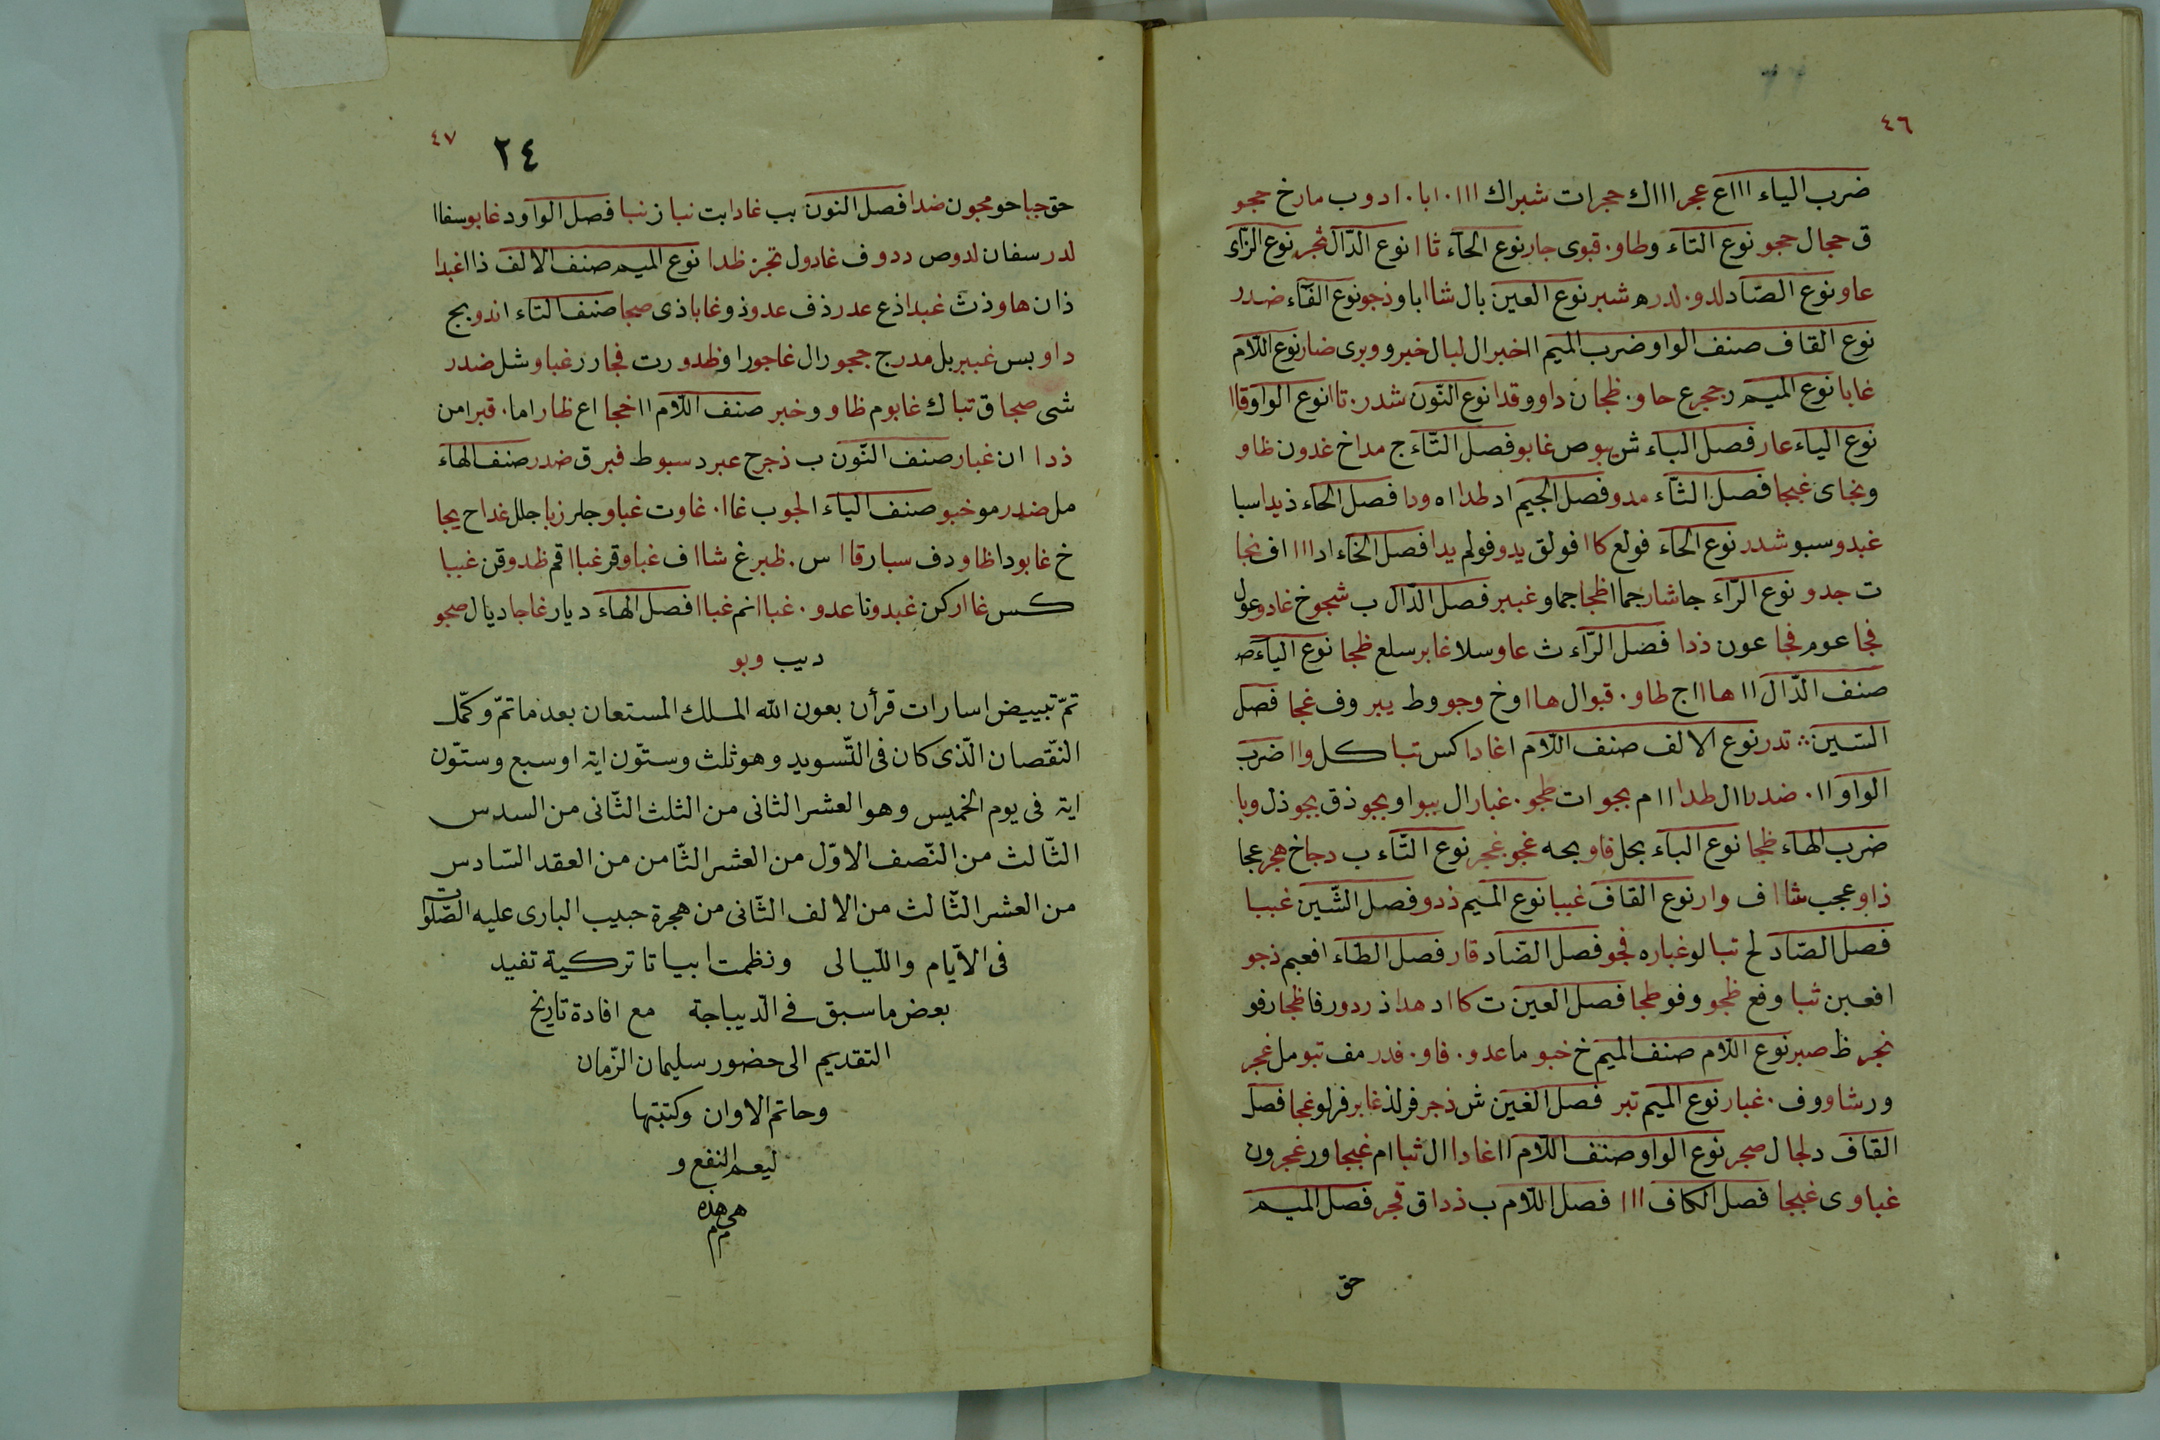 ٤٦
ضرب الياء ااا ع عجر اااك حجرات شبراك ااا ٠ ابا ٠ ادوب مارخ حجو
ق حجال حجو نوع التاء وطاو ٠ قبوى جار نوع الحآء ثاا نوع الدّال تجر نوع الزّاء
عاو نوع الصّاد لدو ٠ لدره شبر نوع العين بال شاا باو ذجو نوع الفآء ضدر
نوع القاف صنف الواو ضرب الميم ااخبر ال لبال خبرو وبرى ضار نوع اللّام
غابا نوع الميم رججرع حاو ٠ ظجان داو وقدا نوع النّون شدر ٠ تاا نوع الواو قاا
نوع الياء عار فصل الباء ش بوص غابو فصل التّاء ج مداخ غدون ظاو
ونجاى غبجا فصل الثّاء مدو فصل الجيم اد طدا اه ودا فصل الحاء ذيدا سبا
غبدو سبو شدر نوع الحاء فولع كاا فولق يدو فولم يدا فصل الخاء اد اااا ف نجا
ت جدو نوع الرّاء جا شار جما اظجا جماو غببر فصل الدّال ب شجوخ غادو عول
فجا عوم فجا عون ذدا فصل الرّاء ث عاو سلا غابر سلع ظجا نوع الياء ص
صنف الدّال اا هاا اج طاو ٠ قبوال هاا وخ وجو وط يبر وف غجا فصل
السّين تدر نوع الالف صنف اللّام اغادا كس تبا كل واا ضرب
الواو اا ٠ ضدر اال طدا اام بجوات طجو ٠ غبار ال ببواو بجو ذق بجو ذل وبا
ضرب الهاء ظجا نوع الباء بحل فاو بحه غجو غجر نوع التّاء ب دجاخ هجر عجا
ذاو عجب شاا ف وار نوع القاف غببا نوع الميم ذدو فصل الشّين غببا
فصل الصّاد لح تبا لو غباره فجو فصل الضّاد قار فصل الطّاء افعبم ذجو
افعبن ثبا وفع ظجو وفو طجا فصل العين ت كاا د هدا ذ ردور فا ظجا رفو
نجر ظ صبر نوع اللّام صنف الميم خ خبو ما عدو ٠ فاو ٠ فدر مف تبو مل غجر
ورشاو وف ٠ غبار نوع الميم تبر فصل الغين ش ذجر فرلذ غابر فرلو غجا فصل
القاف دلجال صجر نوع الواو صنف اللّام اا غادا ال ثبا ام غبجا ور غجرون
غباوى غبجا فصل الكاف ااا فصل اللّام ب ذداق قجر فصل الميم
حق
٤٧
٢٤
حق جبا حو مجون ضدا فصل النون بب غادا بت نبا ز نبا فصل الواو د غابو سفاا
لدر سفان لدوص ددوف غادول تجرز ظدا نوع الميم صنف الالف ذا اغبدا
ذان هاو ذث غبدا ذع عدر ذف عدو ذو غابا ذى صجا صنف التاء اندو بج
داو بس غببر بل مدرج ججور ال غاجورا وظدو رت فجارر غباو شل ضدر
شى صجاق تباك غابوم ظاو وخبر صنف اللّام اا خجا اع ظار اما ٠ قبر امن
ذدا ان غبار صنف النّون ب ذجرح عبرد سبوط فبرق ضدر صنف الهاء
مل ضدر مو خبو صنف الياء الجوب غاا ٠ غاوت غباو جلر زبا جلل غداح يجا
خ غابو دا ظاودف سبار قاا س ٠ ظبرغ شاا ف غباو قر غباا قم ظدو قن غببا
كس غاار كن غبدو نا عدو ٠ غباا نم غباا فصل الهاء ديار غاجا ديال صجو
ديب وبو
تمّ تبييض اسارات قرأن بعون الله الملك المستعان بعد ما تمّ وكمّل
النّقصان الّذى كان فى التّسويد وهو ثلث وستّون ايته او سبع وستّون
ايته فى يوم الخميس وهو العشر الثانى من الثلث الثّانى من السدس
الثّالث من النّصف الاوّل من العشر الثّامن من العقد السّادس
من العشر الثّالث من الالف الثّانى من هجرة حبيب البارى عليه الصّلوات
فى الايّام واللّيالى ونظمت ابياتا تركية تفيد
بعض ما سبق فى الدّيباجة مع افادة تاريخ
التقديم الى حضور سليمان الزّمان
وحاتم الاوان وكتبتها
ليعم النفع و
هى هذه
م م